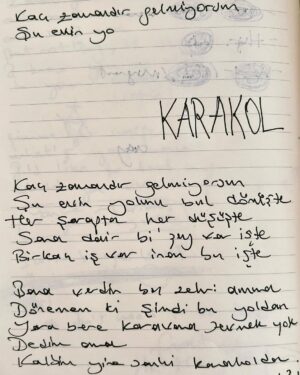 Kaç zamandır gelmiyorsun
Şu evin yo
KARAKOL
Kaç zamandır gelmiyorsun
Şu evin yolunu bul dönüşte
Her şarapta her düşüşte
Sana dair bi' şey var işte
Birkaç iş var inan bu işte
Bana verdin bu zehri amma
Dönemem ki şimdi bu yoldan
Yara bere karavana sevmek yok
Dedim ama
Kaldım yine sanki karakolda